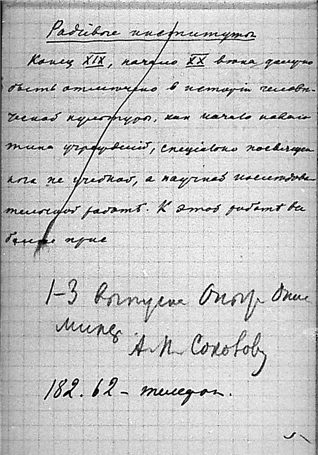 Радіевые институты
Конец XIX, начало XX века должно
быть отмечено в исторіи человѣ-
ческой культуры, как начало
учрежденій, спеціально посвящен
не учебной, а научной изслѣдова-
тельской работѣ. К этой работѣ
1-3 выпуска Опыт Опис
Минер
А.П. Соколову
182.62 – телефон.